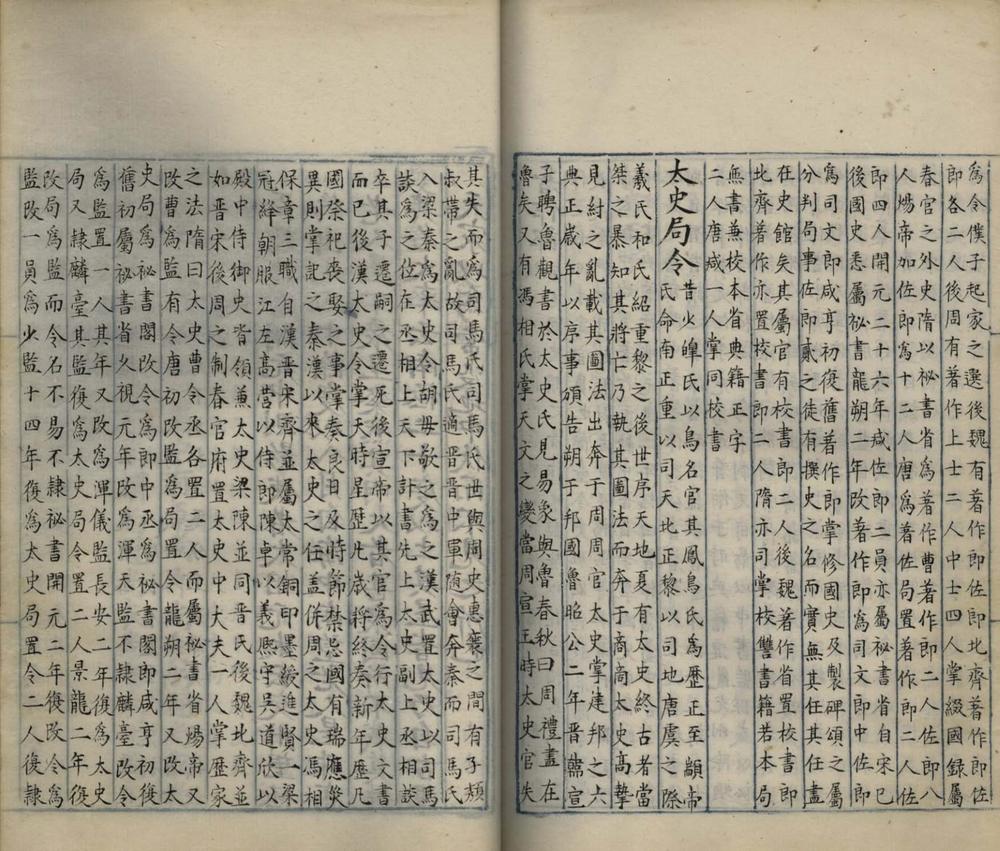 為令僕子起家之選後魏有著作佐郎北齊著作郎佐
即各二人後周有著作上士二人中士四人掌綴國録屬
春官之外史隋以祕書省為著作曹著作郎二人佐郎八
人煬帝加佐郎為十二人唐為著佐局置著作郎二人佐
即四人開元二十六年咸佐郎二員亦屬祕書省自宋已
後國史悉屬祕書龍朔二年改著作郎為司文郎中佐郎
為司文郎咸亨初復舊著作郎掌修國史及製碑頌之屬
分判局事佐郎貳之徒有撰史之名而實無其任其任盡
在史館矣其屬官有校書郎二人後魏著作省置校書郎
北齊著作亦置校書郎二人隋亦司掌校讐書籍若本局
無書兼校本省典籍 正字
二人唐咸一人掌同校書
太史局令 昔少皥氏以鳥名官其鳳鳥氏為歷正至顓帝
氏命南正重以司天北正黎以司地唐虞之際
羲氏和氏紹重黎之後世序天地夏有太史終古者當
桀之暴知其將亡乃執其圖法而奔于商商太史高摯
見紂之亂載其圖法出奔于周周官太史掌建邦之六
典正歲年以序事頒告朔于邦國魯昭公二年晉韓宣
子聘魯觀書於太史氏見易象與魯春秋曰周禮盡在
魯矣又有馮相氏掌天文之變當周宣王時太史官失
其失而為司馬氏司馬氏世與周史惠襄之間有子頹
叔帶之亂故司馬氏適晉晉中軍隨會奔秦而司馬氏
入梁秦為太史令胡母敬之為之漢武置太史公以司馬
談為之位在丞相上天下計書先上太史副上丞相談
卒其子遷嗣之遷死後宣帝以其官為令行太史文書
而已後漢太史令掌天時星歷凡歲將終奏新年歷凡
國祭祀喪娶之事掌奏良日及時節禁忌國有瑞應災
異則掌記之秦漢以來太史之任盖併周之太史馮相
保章三職自漢晉宋齊並屬太常銅印墨綬進賢一梁
冠絳朝服江左高嵩以侍郎陳卓以義熙守吳道欣以
殿中侍御史皆領兼太史梁陳並同晉氏後魏北齊並
如晉宋後周之制春官府置太史中大夫一人掌歷家
之法隋曰太史曹令丞各置二人而屬祕書省煬帝又
改曹為監有令唐初改監為局置令龍朔二年又改太
史局為祕書閣改令為郎中丞為祕書閣郎咸亨初復
舊初屬祕書省久視元年改為渾天監不隷麟臺改令
為監置一人其年又改為渾儀監長安二年復為太史
局又隷麟臺其監復為太史局令置二人景龍二年復
改局為監而令名不易不隷祕書開元二年復改令為
監改一員為少監十四年復為太史局置令二人後隷